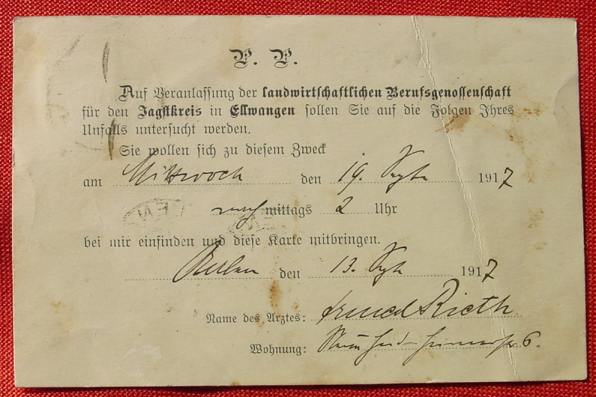 P. P.
Auf Veranlassung der landwirtschaftlichen Berufsgenossenschaft
für den Jagstkreis in Ellwangen sollen Sie auf die Folgen Ihres
Unfalls untersucht werden.
Sie wollen sich zu diesem Zweck
am Mittwoch den 19. Septbr 1917
nachmittags 2 Uhr
bei mir einfinden und diese Karte mitbringen.
Aalen den 13. Sept 1917
Name des Arztes: Rieth
Wohnung: 6.